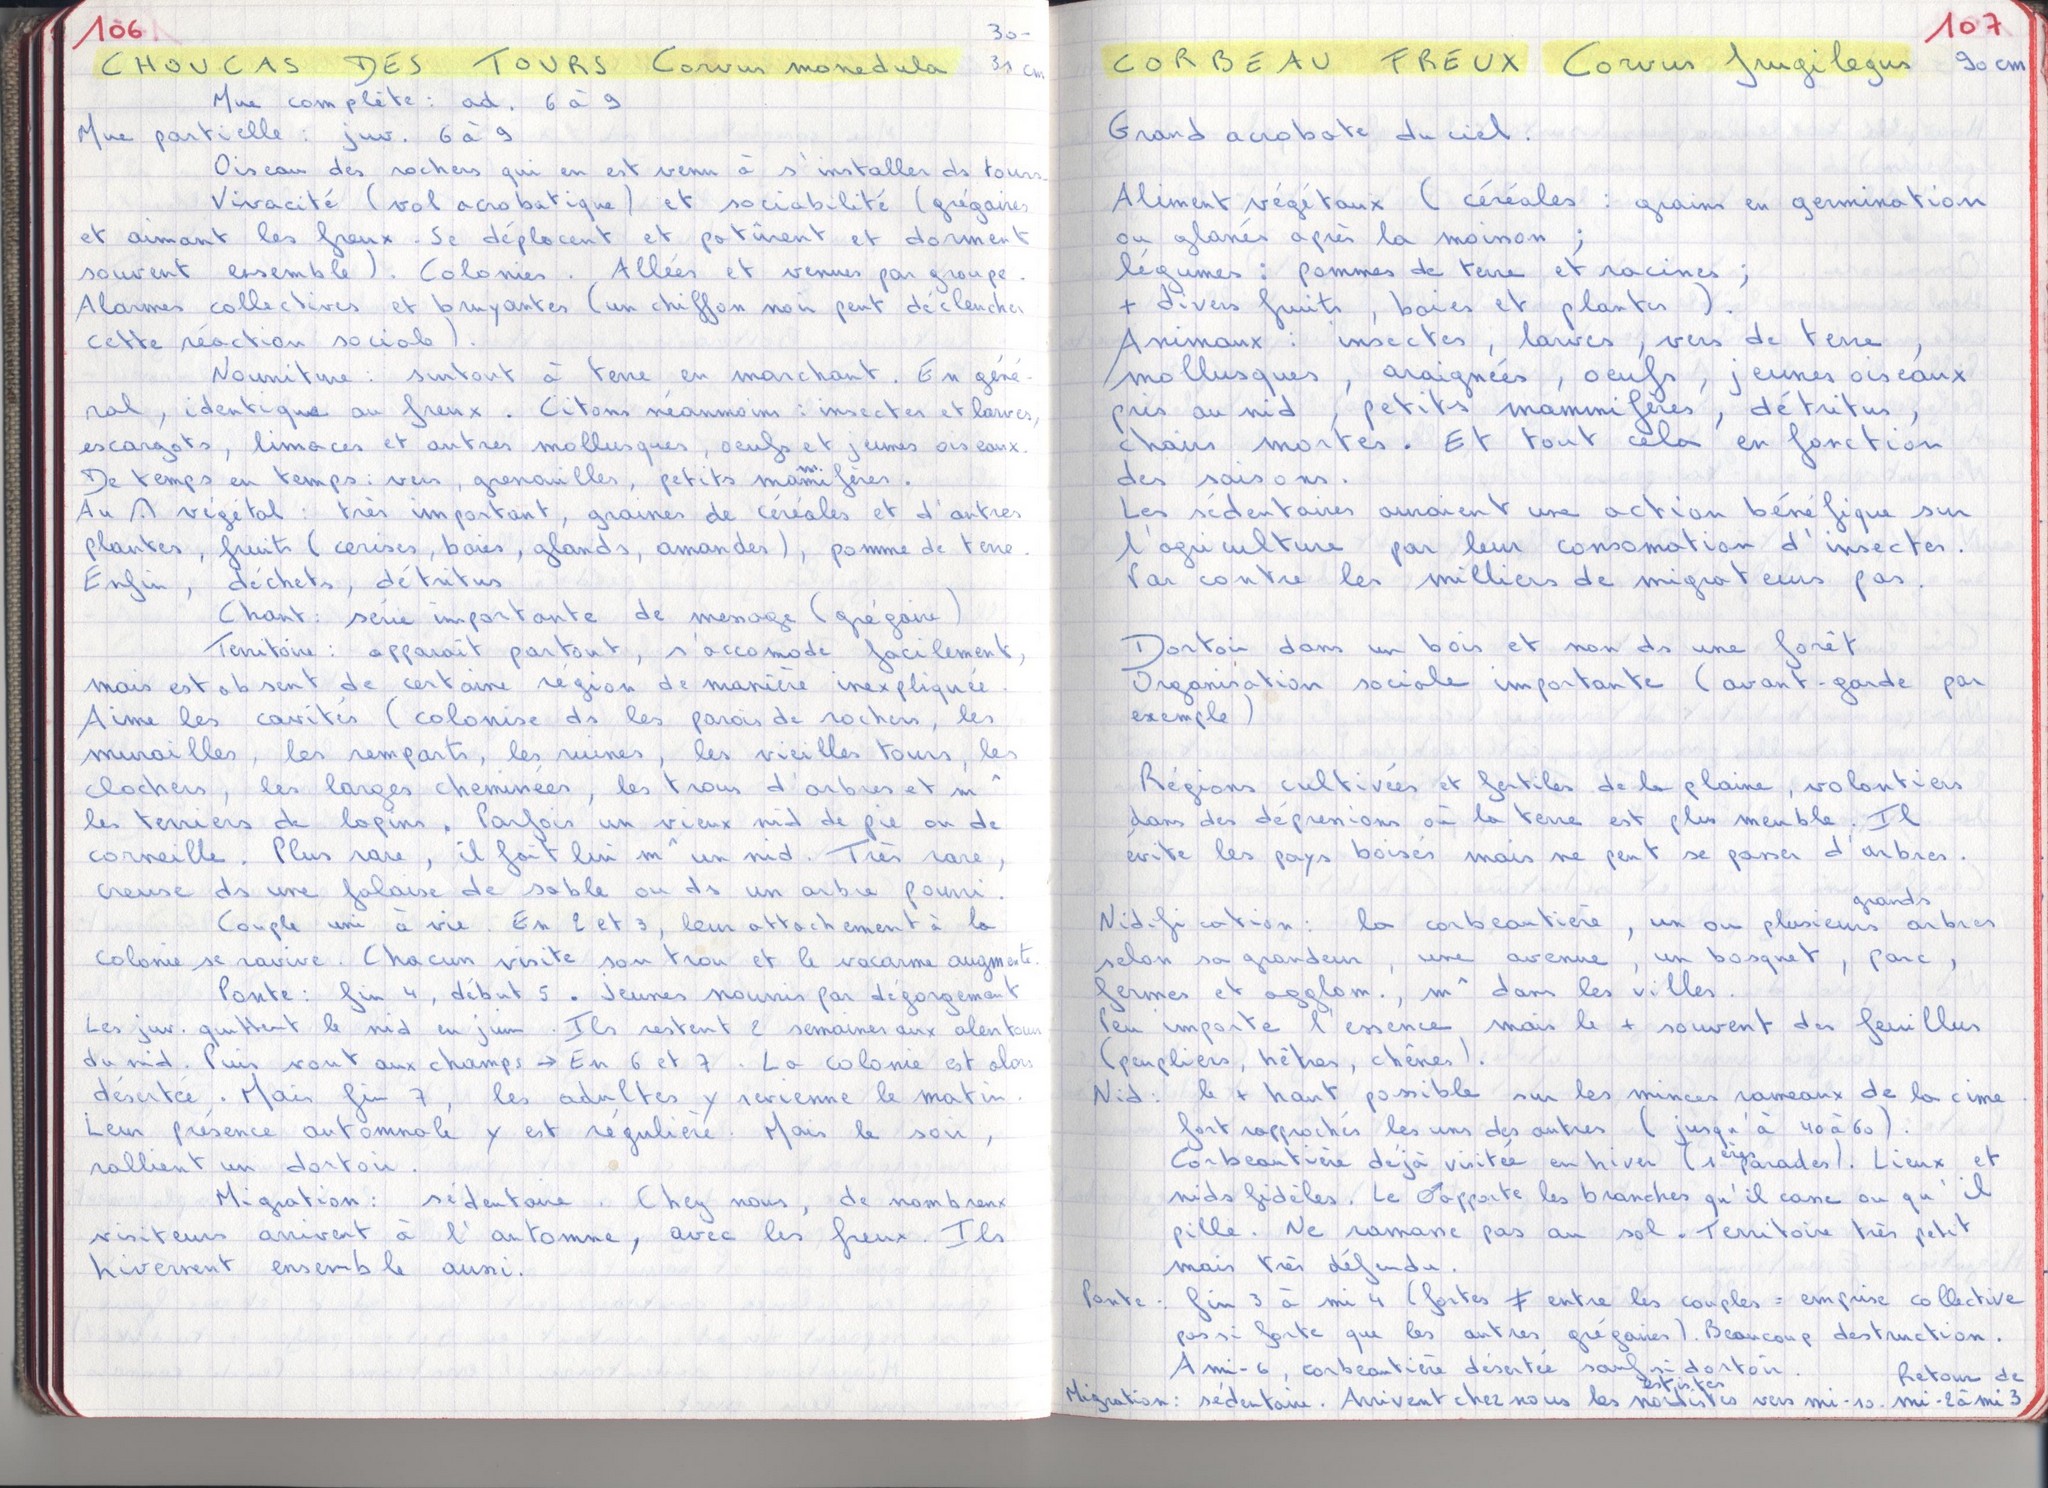 106
30-
CHOUCAS DES TOURS Corvus monedula 31 cm
Mue complète : ad. 6 à 9
Mue partielle : juv. 6 à 9
Oiseau des rochers qui en est venu à s'installer ds tours.
Vivacité (vol acrobatique) et sociabilité (grégaires
et aimant les freux. Se déplacent et patûrent et dorment
souvent ensemble). Colonies. Allées et venues par groupe.
Alarmes collectives et bruyantes (un chiffon noir peut déclencher
cette réaction sociale).
Nourriture : surtout à terre en marchant. En géné-
ral, identique au freux. Citons néanmoins : insectes et larves,
escargots, limaces et autres mollusques, oeufs et jeunes oiseaux.
De temps en temps : vers, grenouilles, petits mammifères.
Au végétal : très important, graines de céréales et d'autres
plantes, fruits (cerises, baies, glands, amandes), pomme de terre.
Enfin, déchets, détritus
Chant : série importante de message (grégaire)
Territoire : apparaît partout, s'accomode facilement,
mais est absent de certaine région de manière inexpliquée.
Aime les cavités (colonise ds les parois de rochers, les
murailles, les remparts, les ruines, les vieilles tours, les
clochers, les larges cheminées, les trous d'arbres et m^
les terriers de lapins. Parfois un vieux nid de pie ou de
corneille. Plus rare, il fait lui m^ un nid. Très rare,
creuse ds une falaise de sable ou ds un arbre pourri.
Couple uni à vie. En 2 et 3, leur attachement à la
colonie se ravive. Chacun visite son trou et le vacarme augmente.
Ponte : fin 4, début 5. Jeunes nourris par dégorgement
Les juv. quittent le nid en juin. Ils restent 2 semaines aux alentours
du nid. Puis vont aux champs → En 6 et 7. La colonie est alors
désertée. Mais fin 7, les adultes y revienne le matin.
Leur présence automnale y est régulière. Mais le soir,
rallient un dortoir.
Migration : sédentaire. Chez nous, de nombreux
visiteurs arrivent à l'automne, avec les freux. Ils
hivernent ensemble aussi.
107
CORBEAU FREUX Corvus frugilegus 90 cm
Grand acrobate du ciel.
Aliment végétaux (céréales : grains en germination
ou glanés après la moisson ;
légumes : pommes de terre et racines ;
+ divers fruits, baies et plantes).
Animaux : insectes, larves, vers de terre,
mollusques, araignées, oeufs, jeunes oiseaux
pris au nid, petits mammifères, détritus,
chairs mortes. Et tout cela en fonction
des saisons.
Les sédentaires auraient une action bénéfique sur
l'agriculture par leur consomation d'insectes.
Par contre les milliers de migrateurs pas.
Dortoir dans un bois et non ds une forêt
Organisation sociale importante (avant-garde par
exemple)
Régions cultivées et fertiles de la plaine, volontiers
dans des dépressions où la terre est plus meuble. Il
évite les pays boisés mais ne peut se passer d'arbres.
Nidification : la corbeautière, un ou plusieurs grands arbres
selon sa grandeur, une avenue, un bosquet, parc,
fermes et agglom., m^ dans les villes.
Peu importe l'essence mais le + souvent des feuillus
(peupliers, hêtres, chênes).
Nid : le + haut possible sur les minces rameaux de la cime.
fort rapprochés les uns des autres (jusqu'à 40 à 60).
Corbeautière déjà visitée en hiver (1ères parades). Lieux et
nids fidèles. Le ♂ apporte les branches qu'il casse ou qu'il
pille. Ne ramasse pas au sol. Territoire très petit
mais très défendu.
Ponte : fin 3 à mi 4 (fortes ≠ entre les couples = emprise collective
pas si forte que les autres grégaires). Beaucoup destruction.
A mi-6, corbeautière désertée sauf si dortoir.
Migration : sédentaire. Arrivent chez nous les nordistes estistes vers mi-10. Retour de mi-2 à mi 3